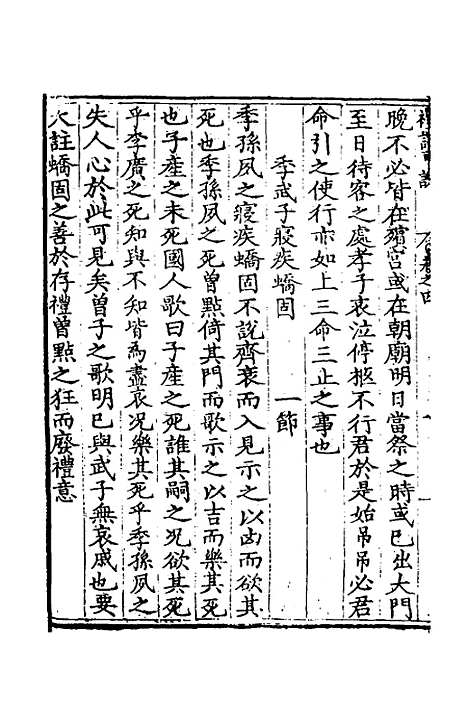 晚不必皆在殯宮或在朝廟明日當祭之時或已出大門
至日待客之處孝子哀泣停柩不行君於是始吊吊必君
命引之使行亦如上三命三止之事也
季武子寢疾蟜固　一節
季孫夙之寢疾蟜固不說齊衰而入見示之以凶而欲其
死也季孫夙之死曾點倚其門而歌示之以吉而樂其死
也子產之未死國人歌曰子產之死誰其嗣之况欲其死
乎李廣之死知與不知皆為盡哀况樂其死乎季孫夙之
失人心於此可見矣曾子之歌明已與武子無哀戚也要
大註蟜固之善於存禮曾點之狂而廢禮意